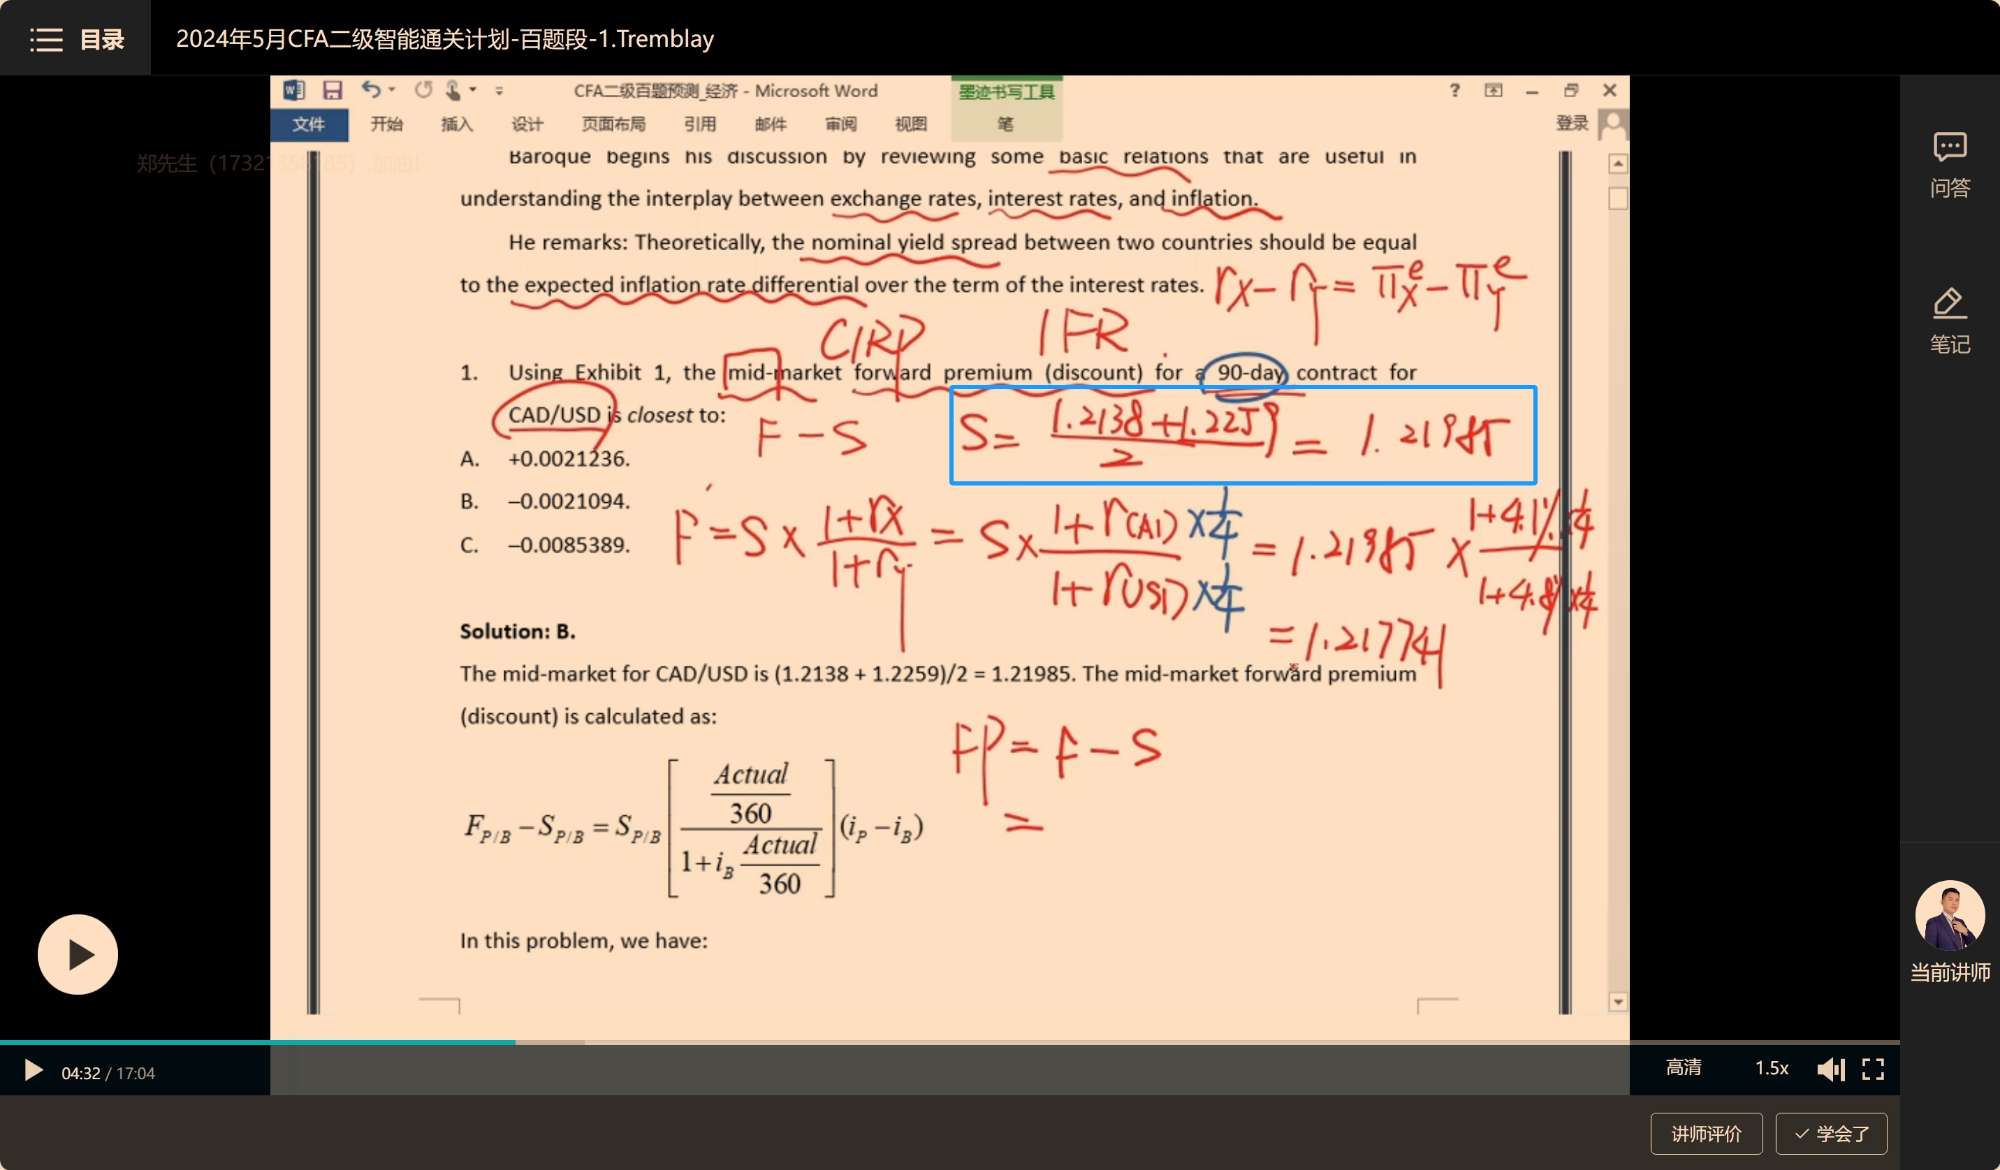 目录
2024年5月CFA二级智能通关计划-百题段-1.Tremblay
CFA二级百题预测_经济 - Microsoft Word
墨迹书写工具
文件 开始 插入 设计 页面布局 引用 邮件 审阅 视图 笔
登录
郑先生
Baroque begins his discussion by reviewing some basic relations that are useful in
understanding the interplay between exchange rates, interest rates, and inflation.
He remarks: Theoretically, the nominal yield spread between two countries should be equal
to the expected inflation rate differential over the term of the interest rates. rx - ry = πx^e - πy^e
CIRP IFR
1. Using Exhibit 1, the mid-market forward premium (discount) for a 90-day contract for
CAD/USD is closest to:
F - S
S = (1.2138+1.2259)/2 = 1.21985
A. +0.0021236.
B. –0.0021094.
C. –0.0085389.
F = S × (1+rx)/(1+ry) = S × (1+rCAD×1/4)/(1+rUSD×1/4) = 1.21985 × (1+4.1%×1/4)/(1+4.8%×1/4)
= 1.217741
Solution: B.
The mid-market for CAD/USD is (1.2138 + 1.2259)/2 = 1.21985. The mid-market forward premium
(discount) is calculated as:
FP = F - S
=
F_{P/B} − S_{P/B} = S_{P/B} [ (Actual/360) / (1 + i_B Actual/360) ] (i_P − i_B)
In this problem, we have:
问答
笔记
当前讲师
04:32 / 17:04
高清 1.5x
讲师评价 学会了